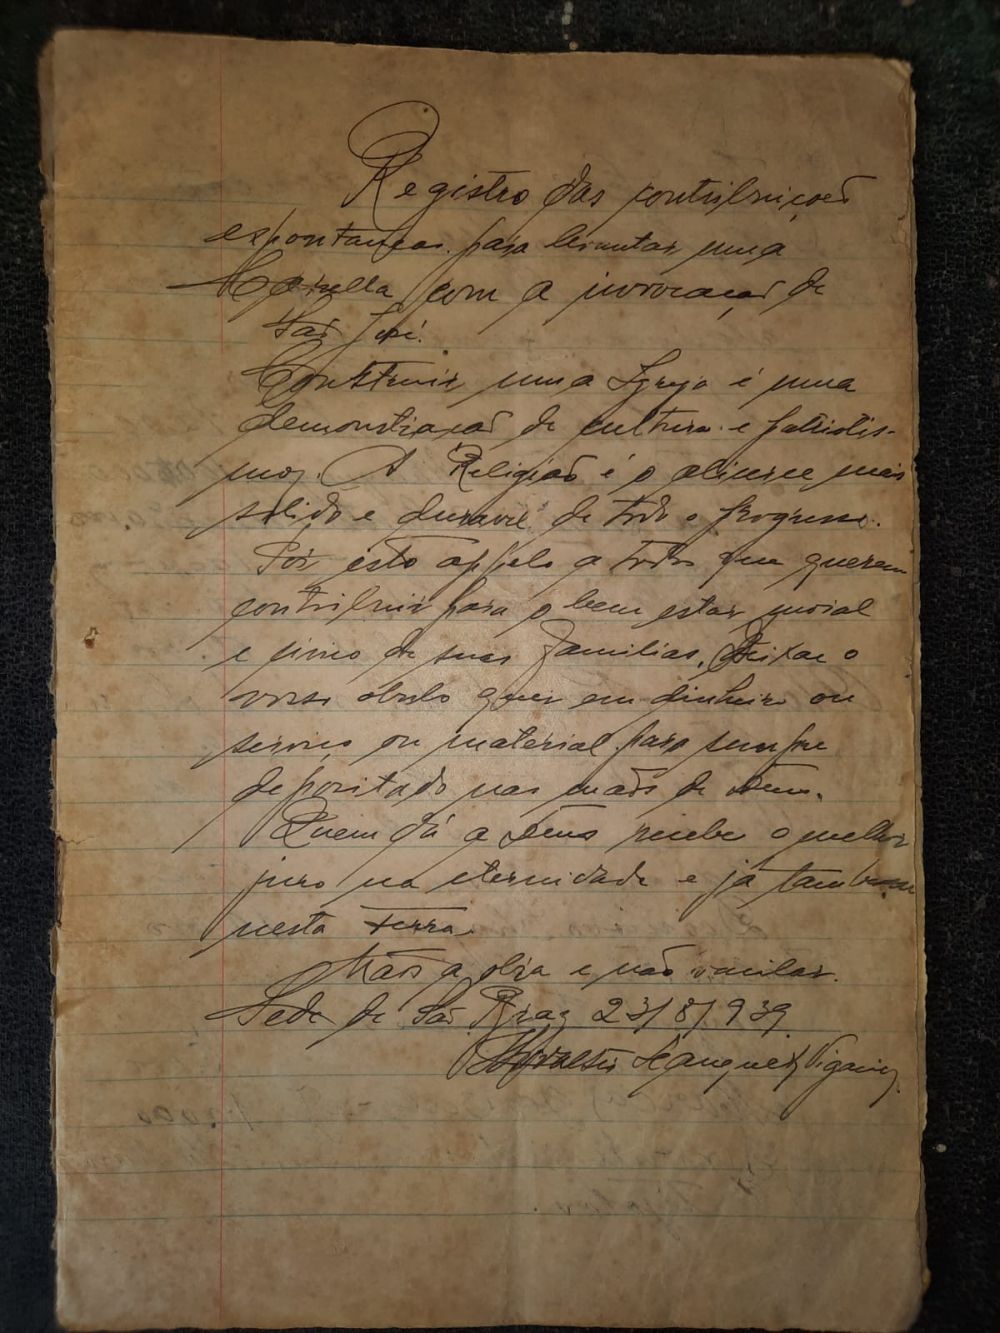 Registro das contribuições
espontaneas para levantar uma
Capella com a invocação de
São José.
Construir uma Igreja é uma
demonstração de cultura e patriotis-
mo. A Religião é o alicerce mais
solido e duravel de todo o progresso.
Por isto appelo a todos que querem
contribuir para o bem estar moral
e civico de suas familias. Deixae o
vosso obolo quer em dinheiro ou
serviço ou material para sempre
depositado nas mãos de Deus.
Quem dá a Deus recebe o melhor
juro na eternidade e já tambem
nesta terra.
Mãos a obra e não vacilar.
Sede de São Braz 23/8/939
Vigario